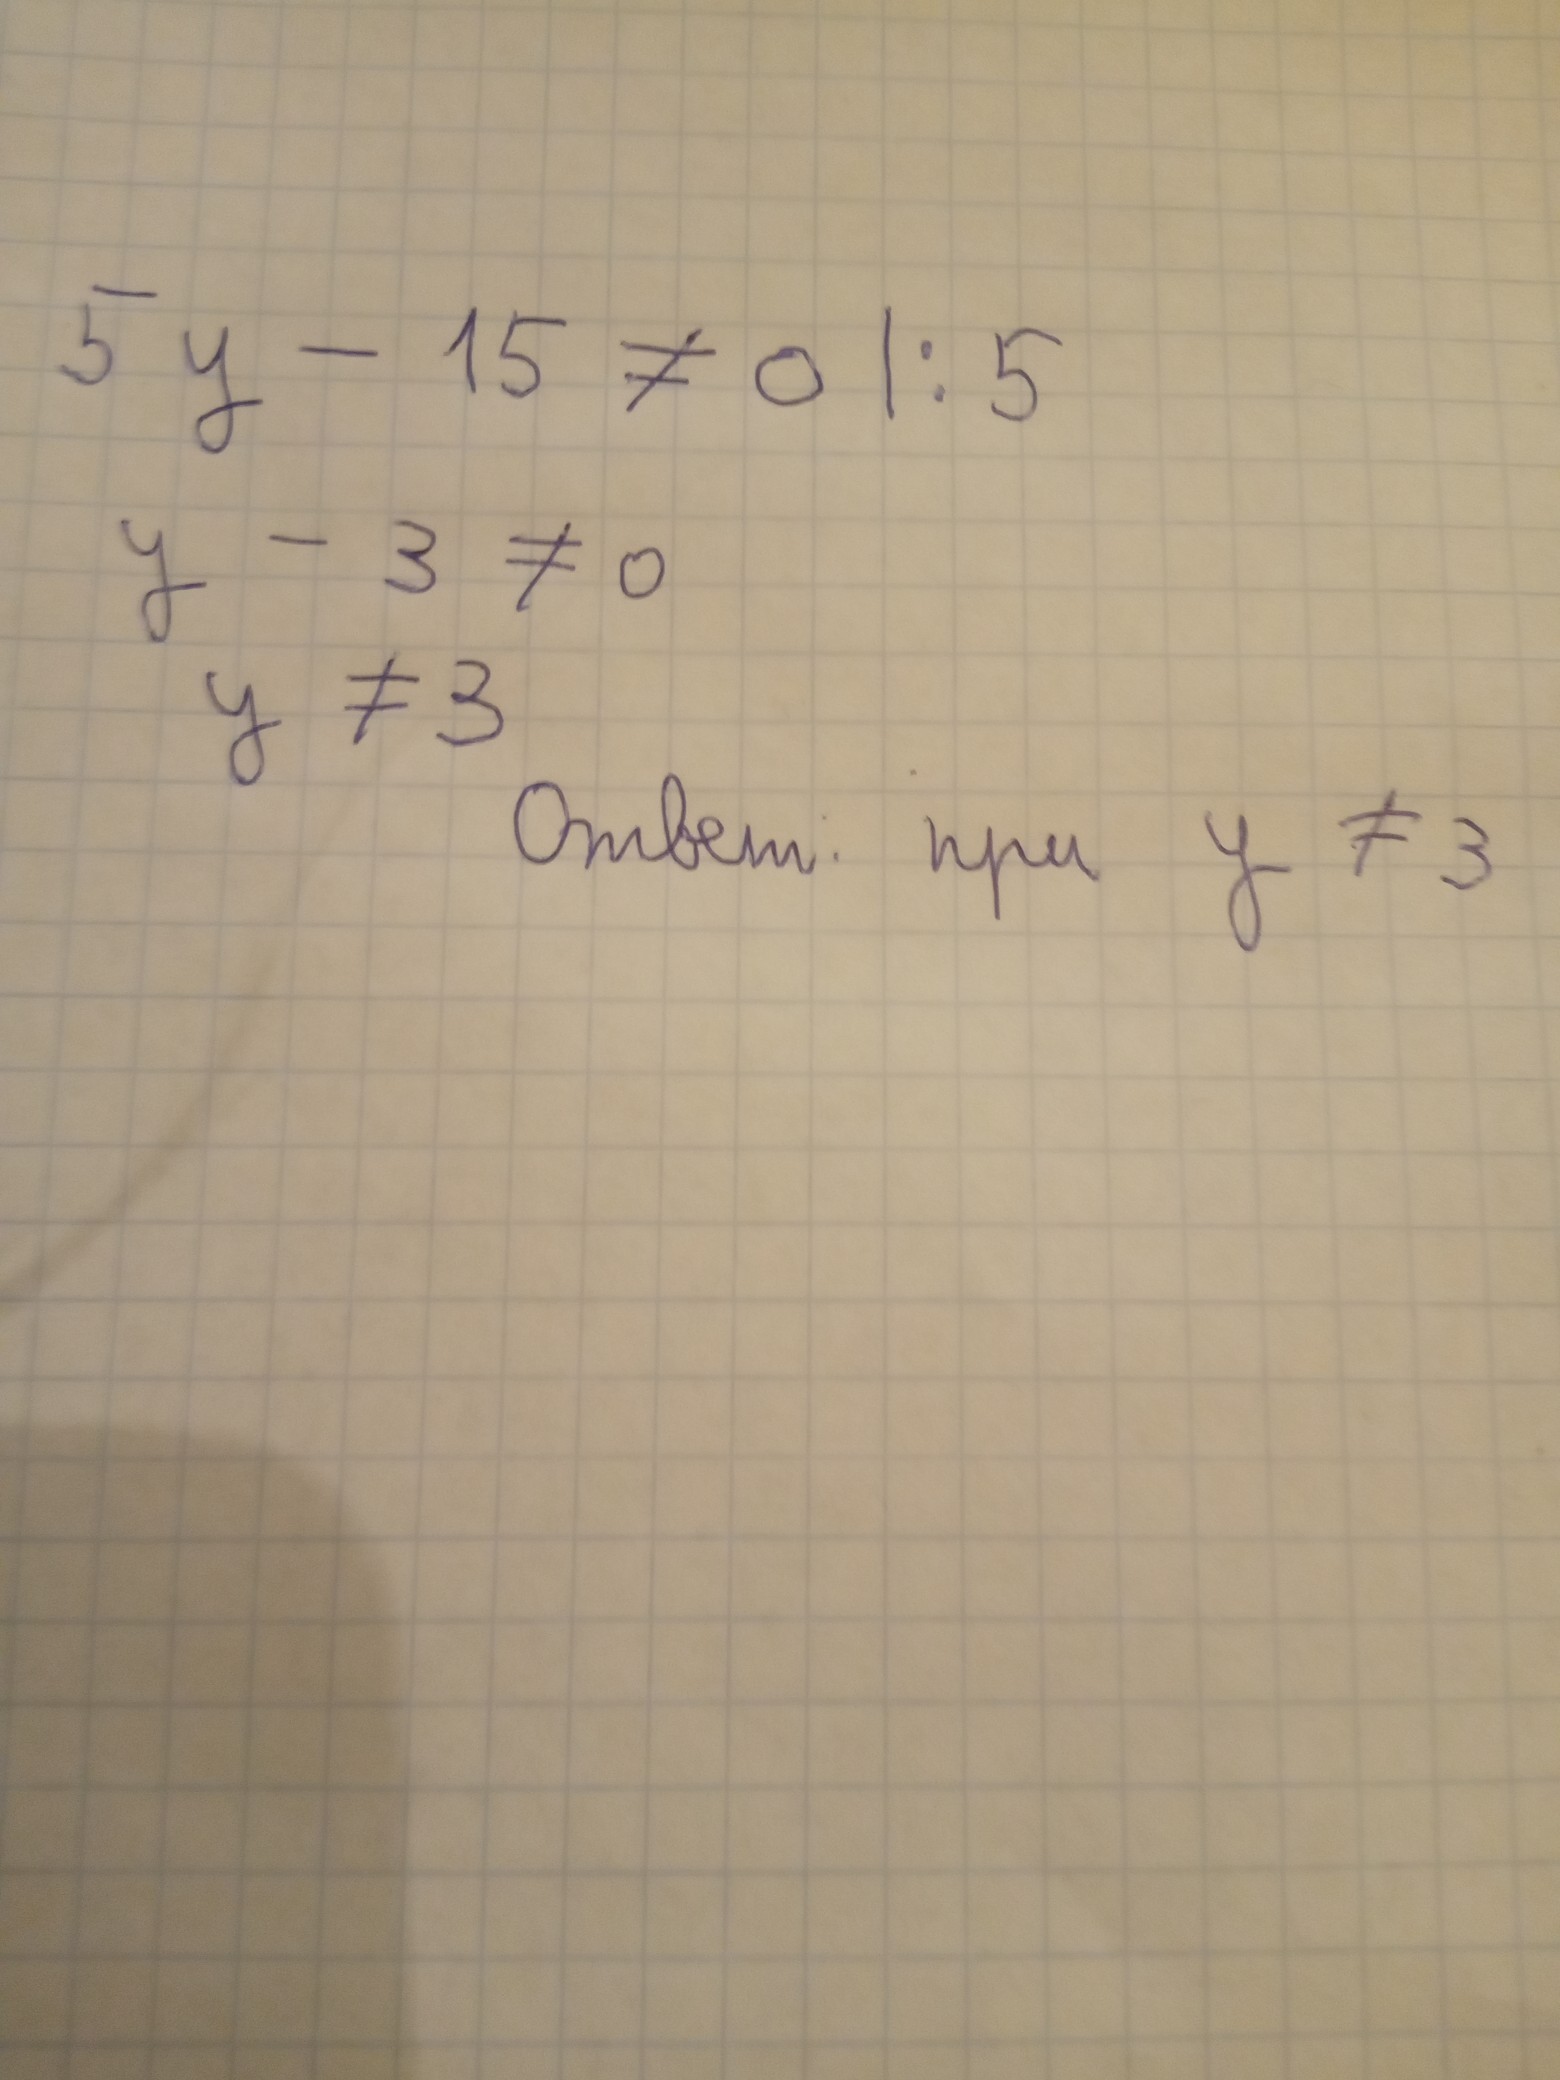 5y - 15 ≠ 0 |: 5
y - 3 ≠ 0
y ≠ 3
Ответ: при y ≠ 3